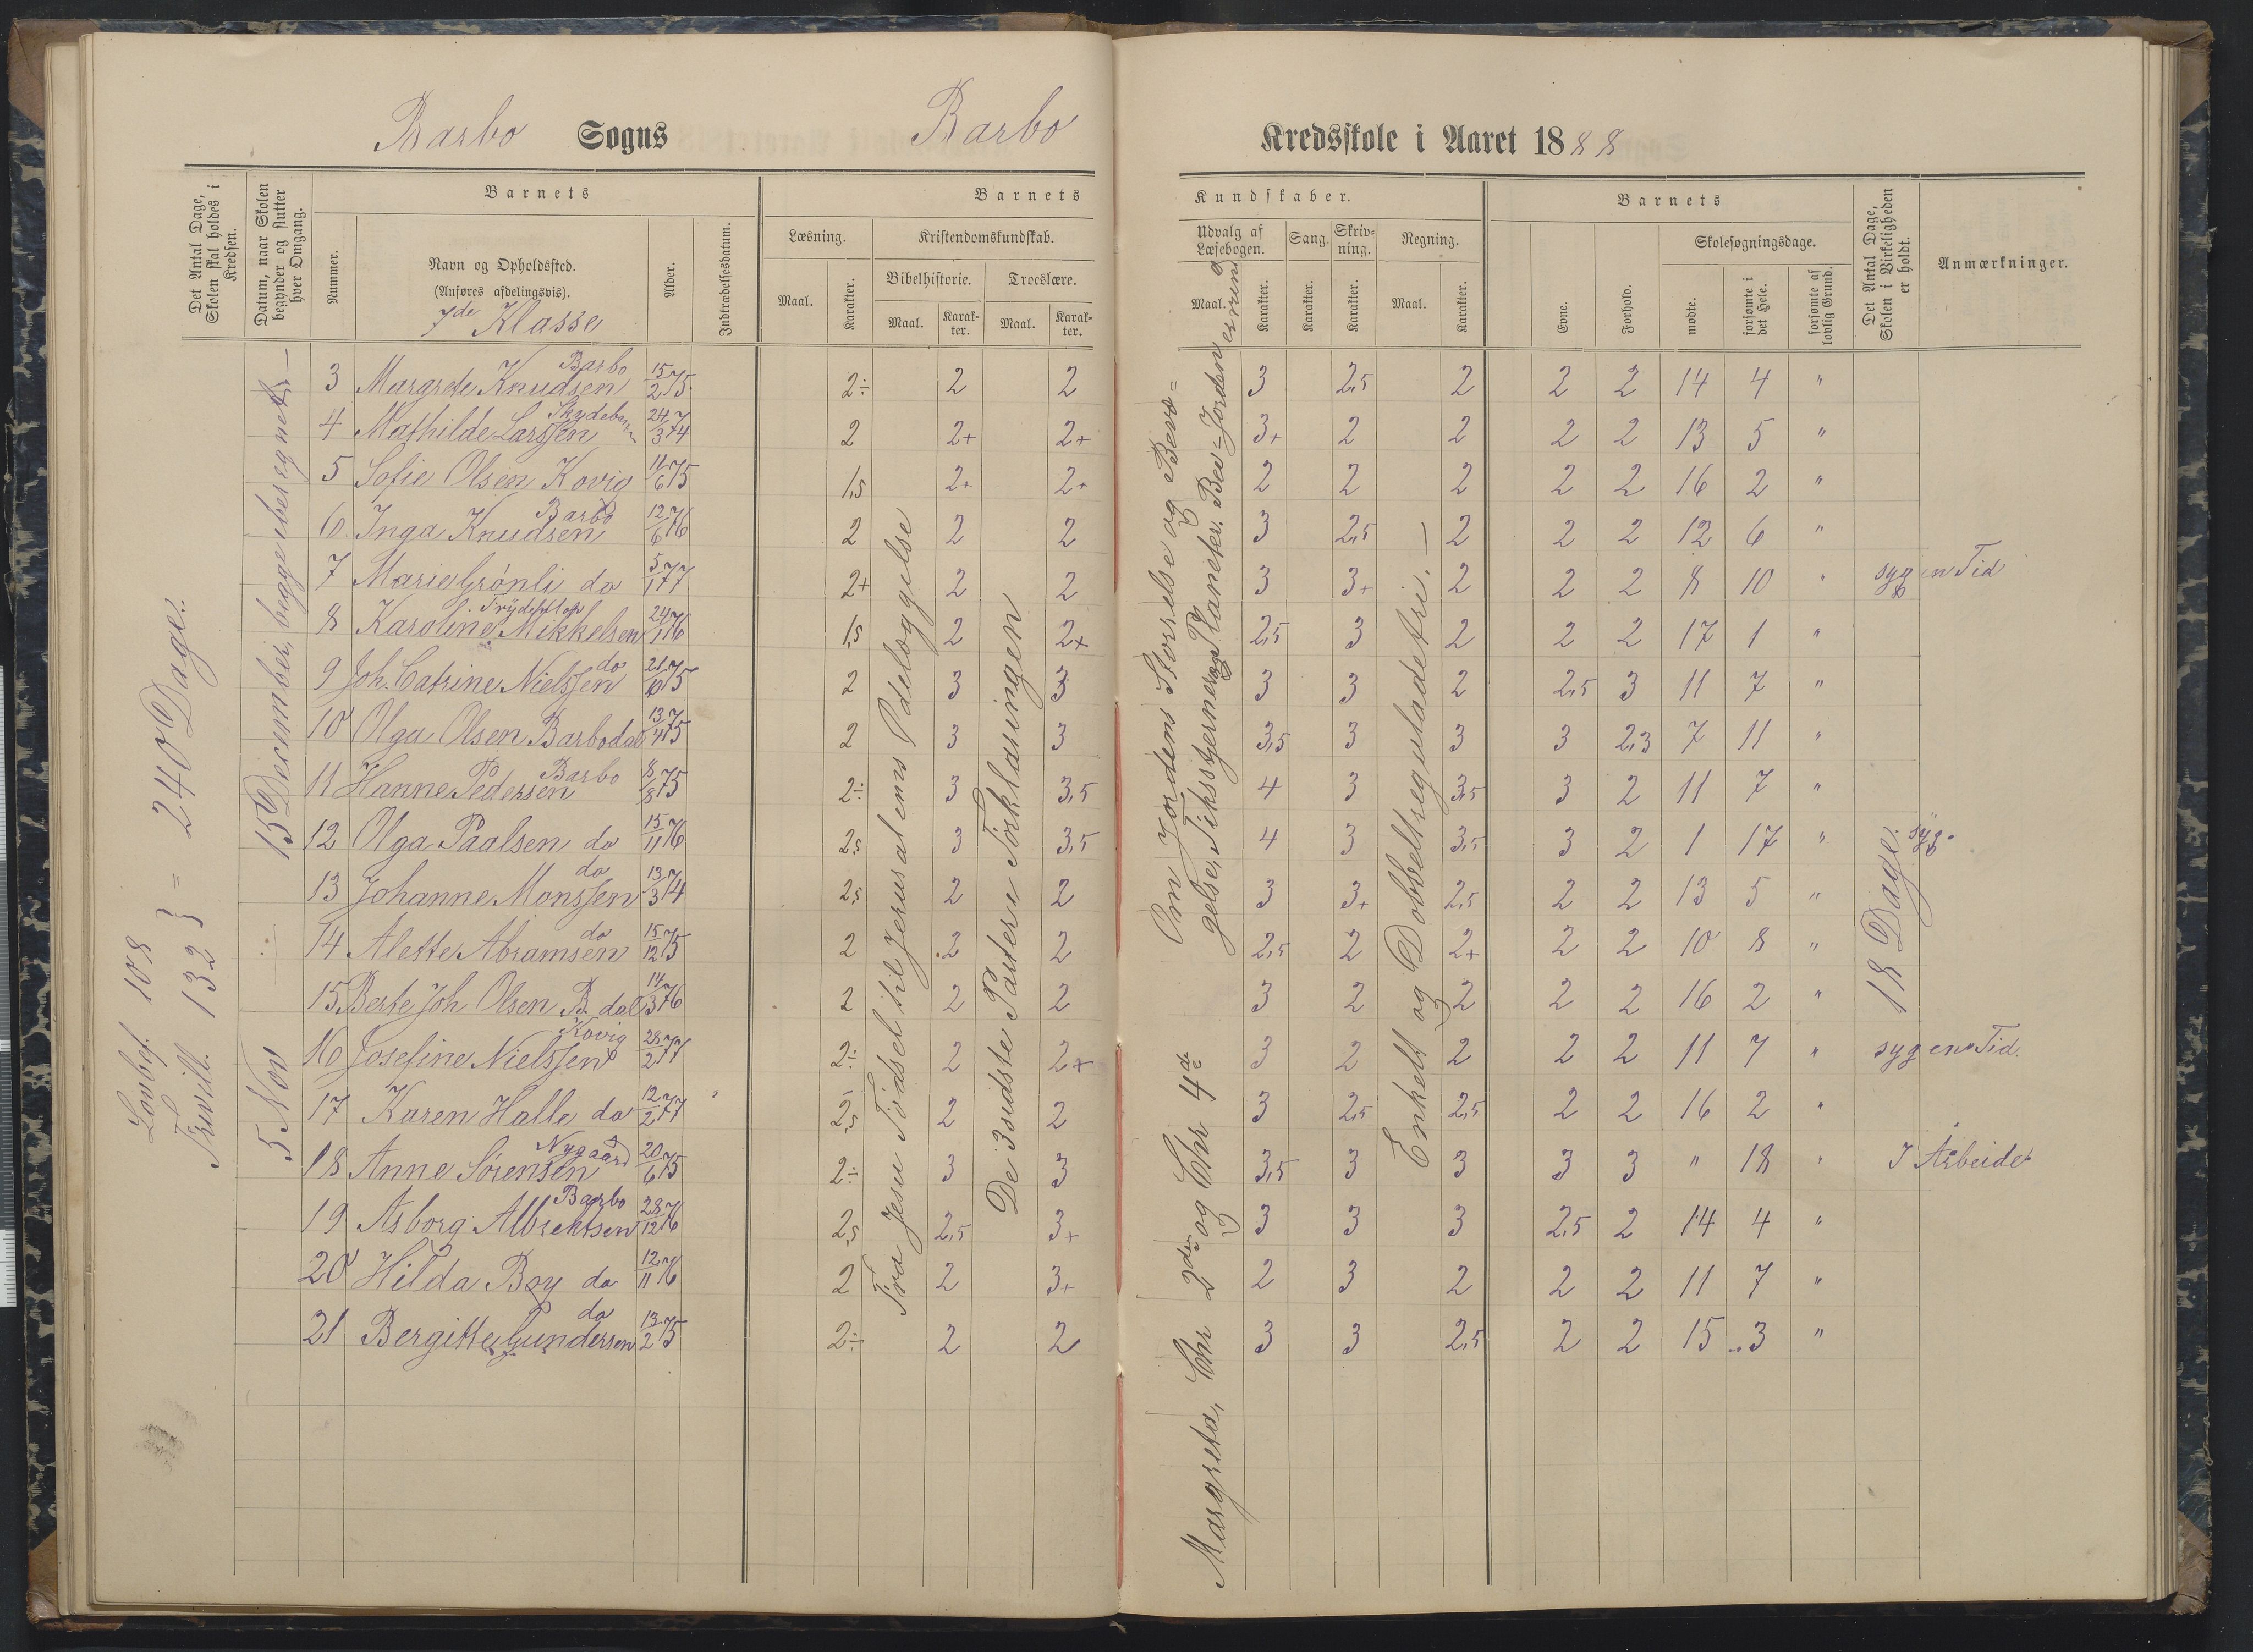 Barbo Sogns Barbo Kredsskole i Aaret 1888
Det Antal Dage, Skolen skal holdes i Kredsen.
Datum, naar Skolen begynder og slutter hver Omgang.
Barnets
Nummer.
Navn og Opholdssted.
(Anføres afdelingsvis).
7de Klasse
Alder.
Indtrædelsesdatum.
Barnets Kundskaber.
Læsning.
Maal.
Karakter.
Kristendomskundskab.
Bibelhistorie.
Maal.
Karakter.
Troeslære.
Maal.
Karakter.
Udvalg af Læsebogen.
Maal.
Karakter.
Sang.
Karakter.
Skrivning.
Karakter.
Regning.
Maal.
Karakter.
Barnets
Evne.
Forhold.
Skolesøgningsdage.
mødte.
forsømte i det Hele.
forsømte af lovlig Grund.
Det Antal Dage, Skolen i Virkeligheden er holdt.
Anmærkninger.
Lovbef. 108
Frivill. 132 } = 240 Dage.
5 Nov 15 December, begge iberegnet. —
Fra Jesu Fødsel til Jerusalems Ødelæggelse
De 3 sidste Parter i Forklaringen
Margreta, Chr 2den og Chr 4de
Om Jordens Størrelse og Bevæ=
gelse, Fiksstjerner og Planeter. Bev=Jorden
Enkelt og Dobbelt regula de tri. —
18 Dage.
3 Margrete Knudsen Barbo 15/2 75 2÷ 2 2 3 2,5 2 2 2 14 4 "
4 Mathilde Larssen 24/3 74 2 2+ 2+ 3+ 2 2 2 2 13 5 "
5 Sofie Olsen Kovig 11/6 75 1,5 2+ 2+ 2 2 2 2 2 16 2 "
6 Inga Knudsen Barbo 12/6 76 2 2 2 3 2,5 2 2 2 12 6 "
7 Marie Grønli do 5/1 77 2+ 2 2 3 3+ 2 2 2 8 10 " syg en Tid
8 Karoline Mikkelsen 24/1 76 1,5 2 2+ 2,5 3 2 2 2 17 1 "
9 Joh. Catrine Nielssen do 21/10 75 2 3 3 3 3 2 2,5 3 11 7 "
10 Olga Olsen Barbodal 13/4 75 2 3 3 3,5 3 3 3 2,3 7 11 "
11 Hanne Pedersen Barbo 8/8 75 2÷ 3 3,5 4 3 3,5 3 2 11 7 "
12 Olga Paalsen do 15/11 76 2,5 3 3,5 4 3 3,5 3 2 1 17 " syg.
13 Johanne Monssen do 13/3 74 2,5 2 2 3 3+ 2,5 2 2 13 5 "
14 Alette Abramsen do 15/12 75 2 2 2 2,5 2 2+ 2 2 10 8 "
15 Berte Joh Olsen B. dal 14/3 76 2 2 2 3 2 2 2 2 16 2 "
16 Josefine Nielssen Kovig 28/2 77 2÷ 2 2+ 3 2 2 2 2 11 7 " syg en Tid.
17 Karen Halle do 12/2 77 2,5 2 2 3 2,5 2,5 2 2 16 2 "
18 Anne Sørensen Nygaard 20/6 75 2÷ 3 3 3,5 3 3 3 3 " 18 " I Arbeide
19 Asborg Albrektsen Barbo 28/12 76 2,5 2,5 3+ 3 3 3 2,5 2 14 4 "
20 Hilda Boy do 12/11 76 2 2 3+ 2 3 2 2 2 11 7 "
21 Bergitte Gundersen do 13/2 75 2÷ 2 2 3 3 2,5 2 2 15 3 "